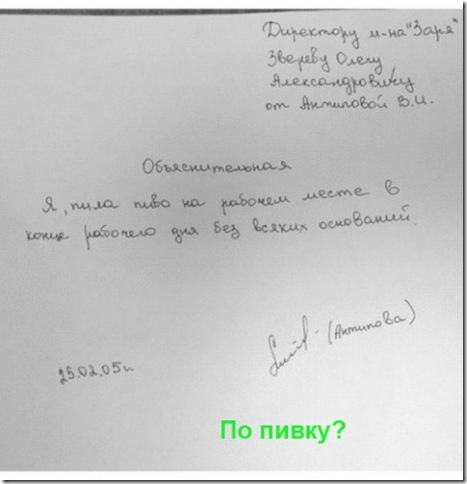 Директору м-на "Заря"
Звереву Олегу
Александровичу
от Антиповой В.И.
Объяснительная
Я, пила пиво на рабочем месте в
конце рабочего дня без всяких оснований.
(Антипова)
25.02.05г.
По пивку?